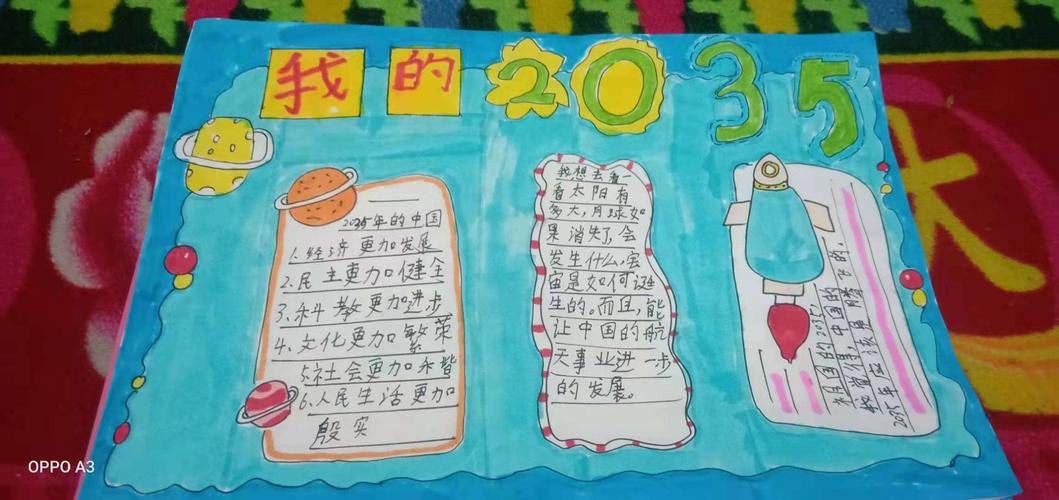 我的2035
2035年的中国
1.经济更加发展
2.民主更加健全
3.科教更加进步
4.文化更加繁荣
5.社会更加和谐
6.人民生活更加
殷实
我想去看一
看太阳有
多大,月球如
果消失了,会
发生什么,宇
宙是如何诞
生的。而且,能
让中国的航
天事业进一步
的发展。
中国的
2035年应该是腾飞的,
OPPO A3